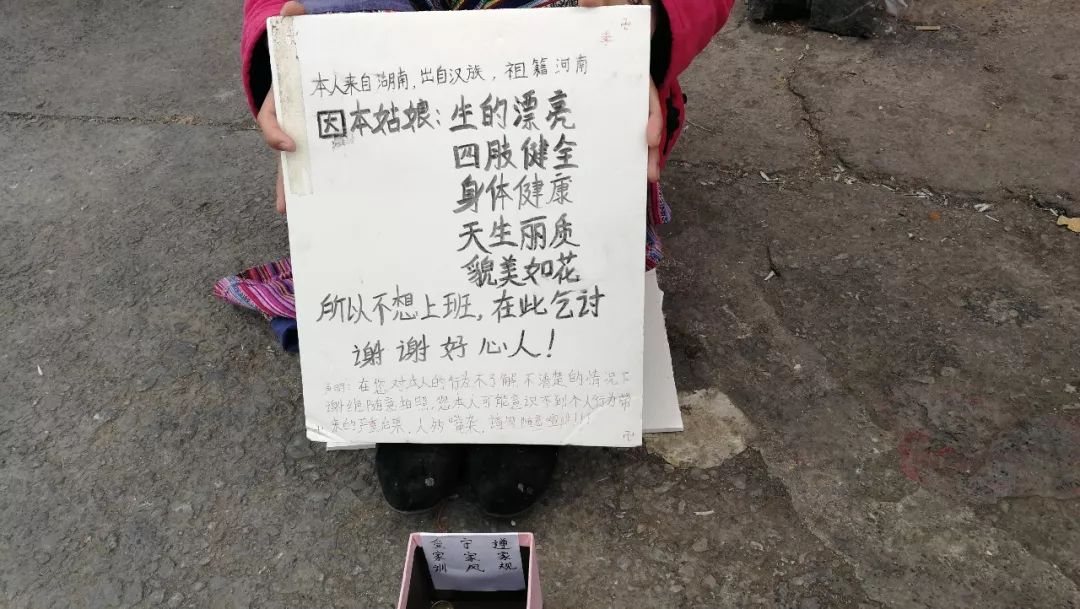 本人来自湖南，出自汉族，祖籍河南
因本姑娘：坐的漂亮
四肢健全
身体健康
天生丽质
貌美如花
所以不想上班，在此乞讨
谢谢好心人！
在您对成人的行为不了解不清楚的情况下
谢绝随意拍照，您本人可能意识不到个人行为带
来的严重后果，人多嘴杂，请勿随意
遵家规
守家风
家训